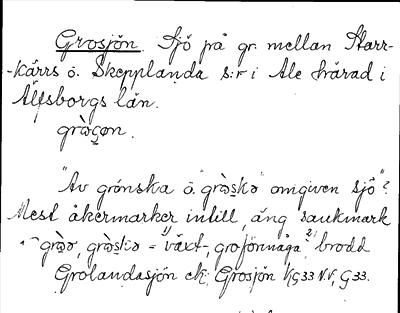 Grosjön. Sjö på gr. mellan Starr-
-kärrs o. Skepplanda s:r i Ale härad i
Älfsborgs län.
"Av grönska o. omgiven sjö"?
Mest åkermarker intill, äng sankmark
= "växt-, groförmåga" brodd
Grolandasjön ek; Grosjön G33 N.V, G33.